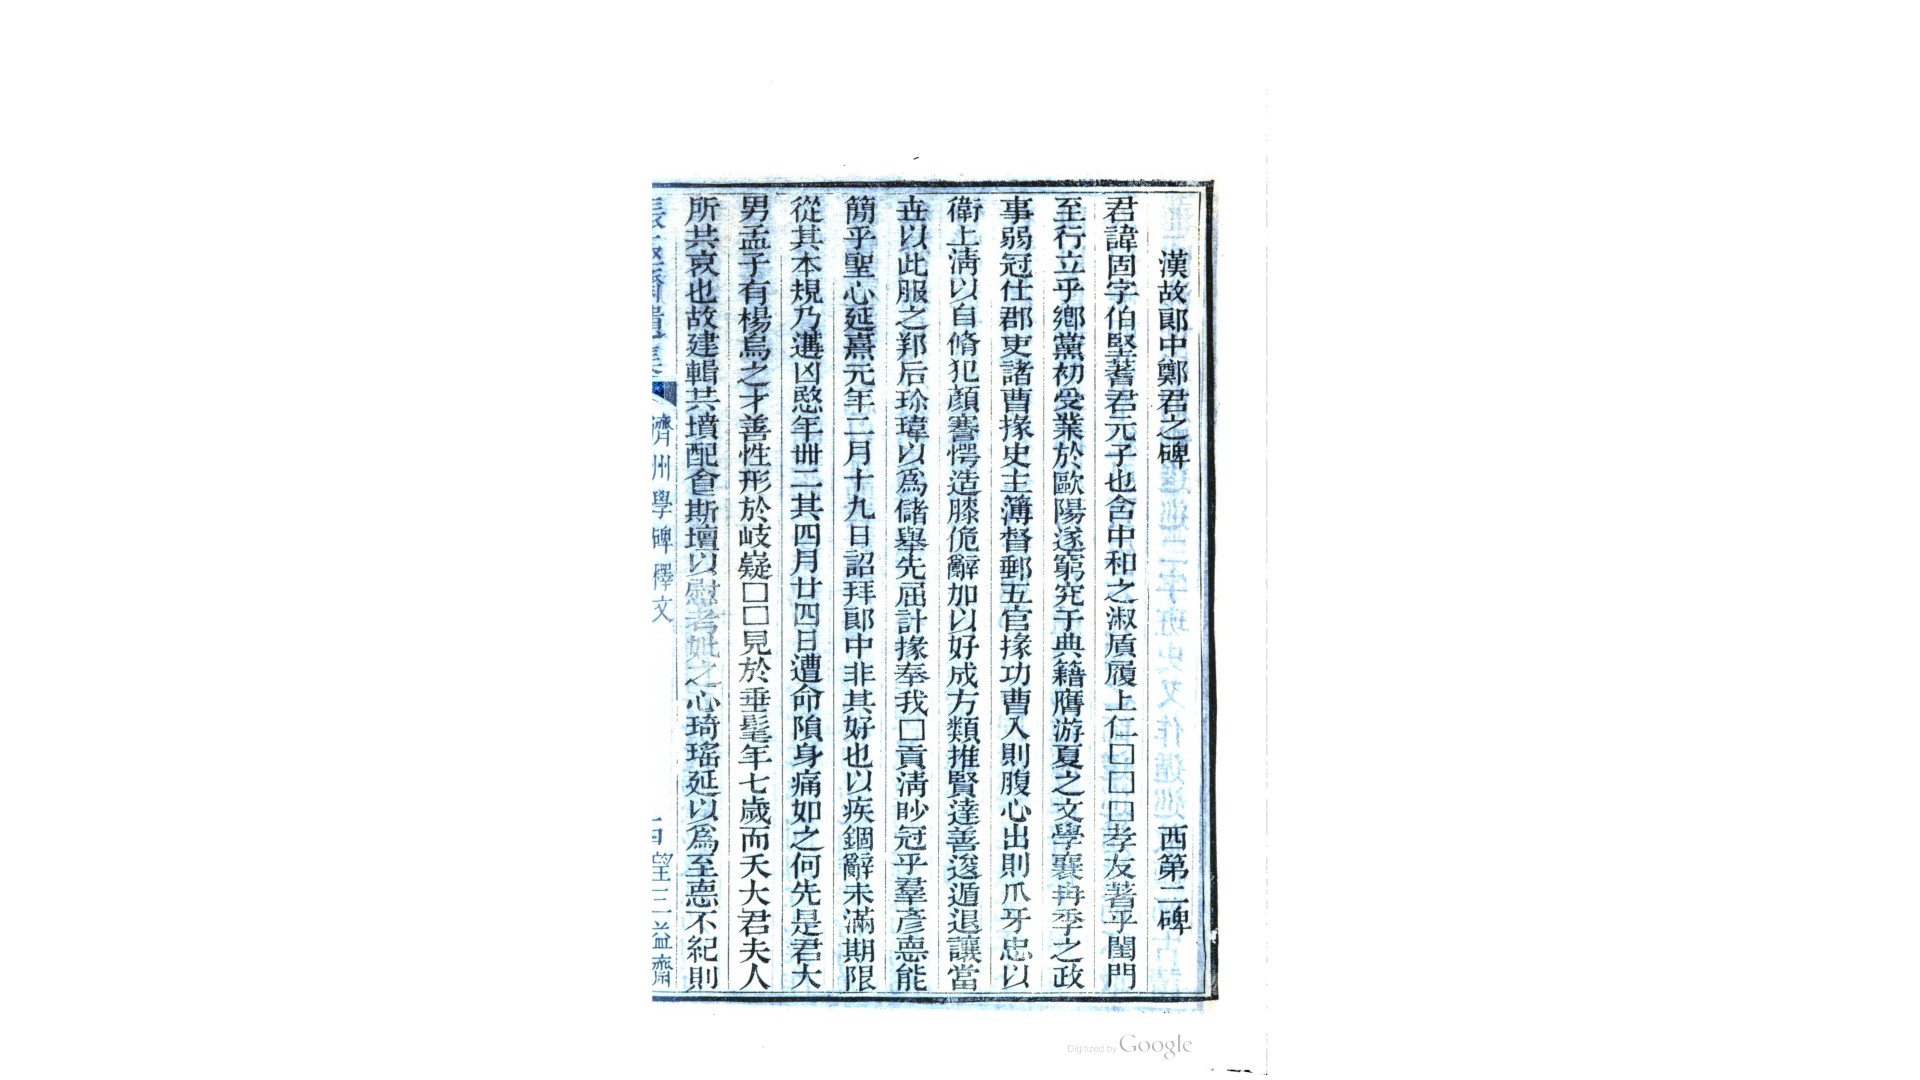 漢故郎中鄭君之碑 西第二碑
君諱固字伯堅蓍君元子也含中和之淑質履上仁□□□孝友著乎閨門
至行立乎鄉黨初受業於歐陽遂窮究于典籍膺游夏之文學襄冉季之政
事弱冠仕郡吏諸曹掾史主簿督郵五官掾功曹入則腹心出則爪牙忠以
衛上清以自脩犯顏謇愕造膝佹辭加以好成方類推賢達善逡遁退讓當
世以此服之邦后珍瑋以爲儲舉先屆計掾奉我□貢清眇冠乎羣彥悳能
簡乎聖心延熹元年二月十九日詔拜郎中非其好也以疾錮辭未滿期限
從其本規乃遘凶愍年卌二其四月廿四日遭命隕身痛如之何先是君大
男孟子有楊烏之才善性形於岐嶷□□見於垂髦年七歲而夭大君夫人
所共哀也故建輯共墳配食斯壇以慰考妣之心琦瑤延以爲至悳不紀則
濟州學碑釋文
望三益齋
Digitized by Google